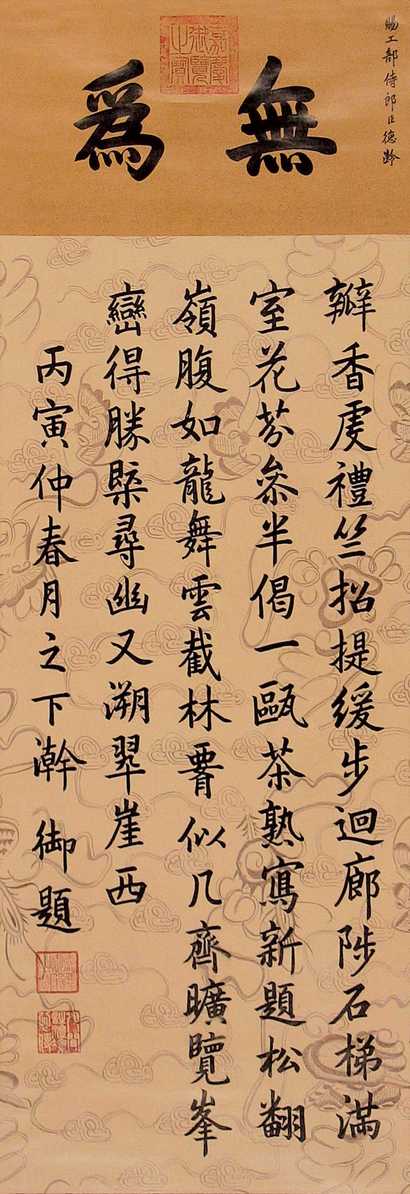 賜工部侍郎臣德齡
無為
嘉慶御覽之寶
瓣香虔禮竺招提緩步迴廊陟石梯滿
室花芬叅半偈一甌茶熟寫新題松翻
嶺腹如龍舞雲截林腰似几齊曠覽峯
巒得勝槩尋幽又溯翠崖西
丙寅仲春月之下澣 御題